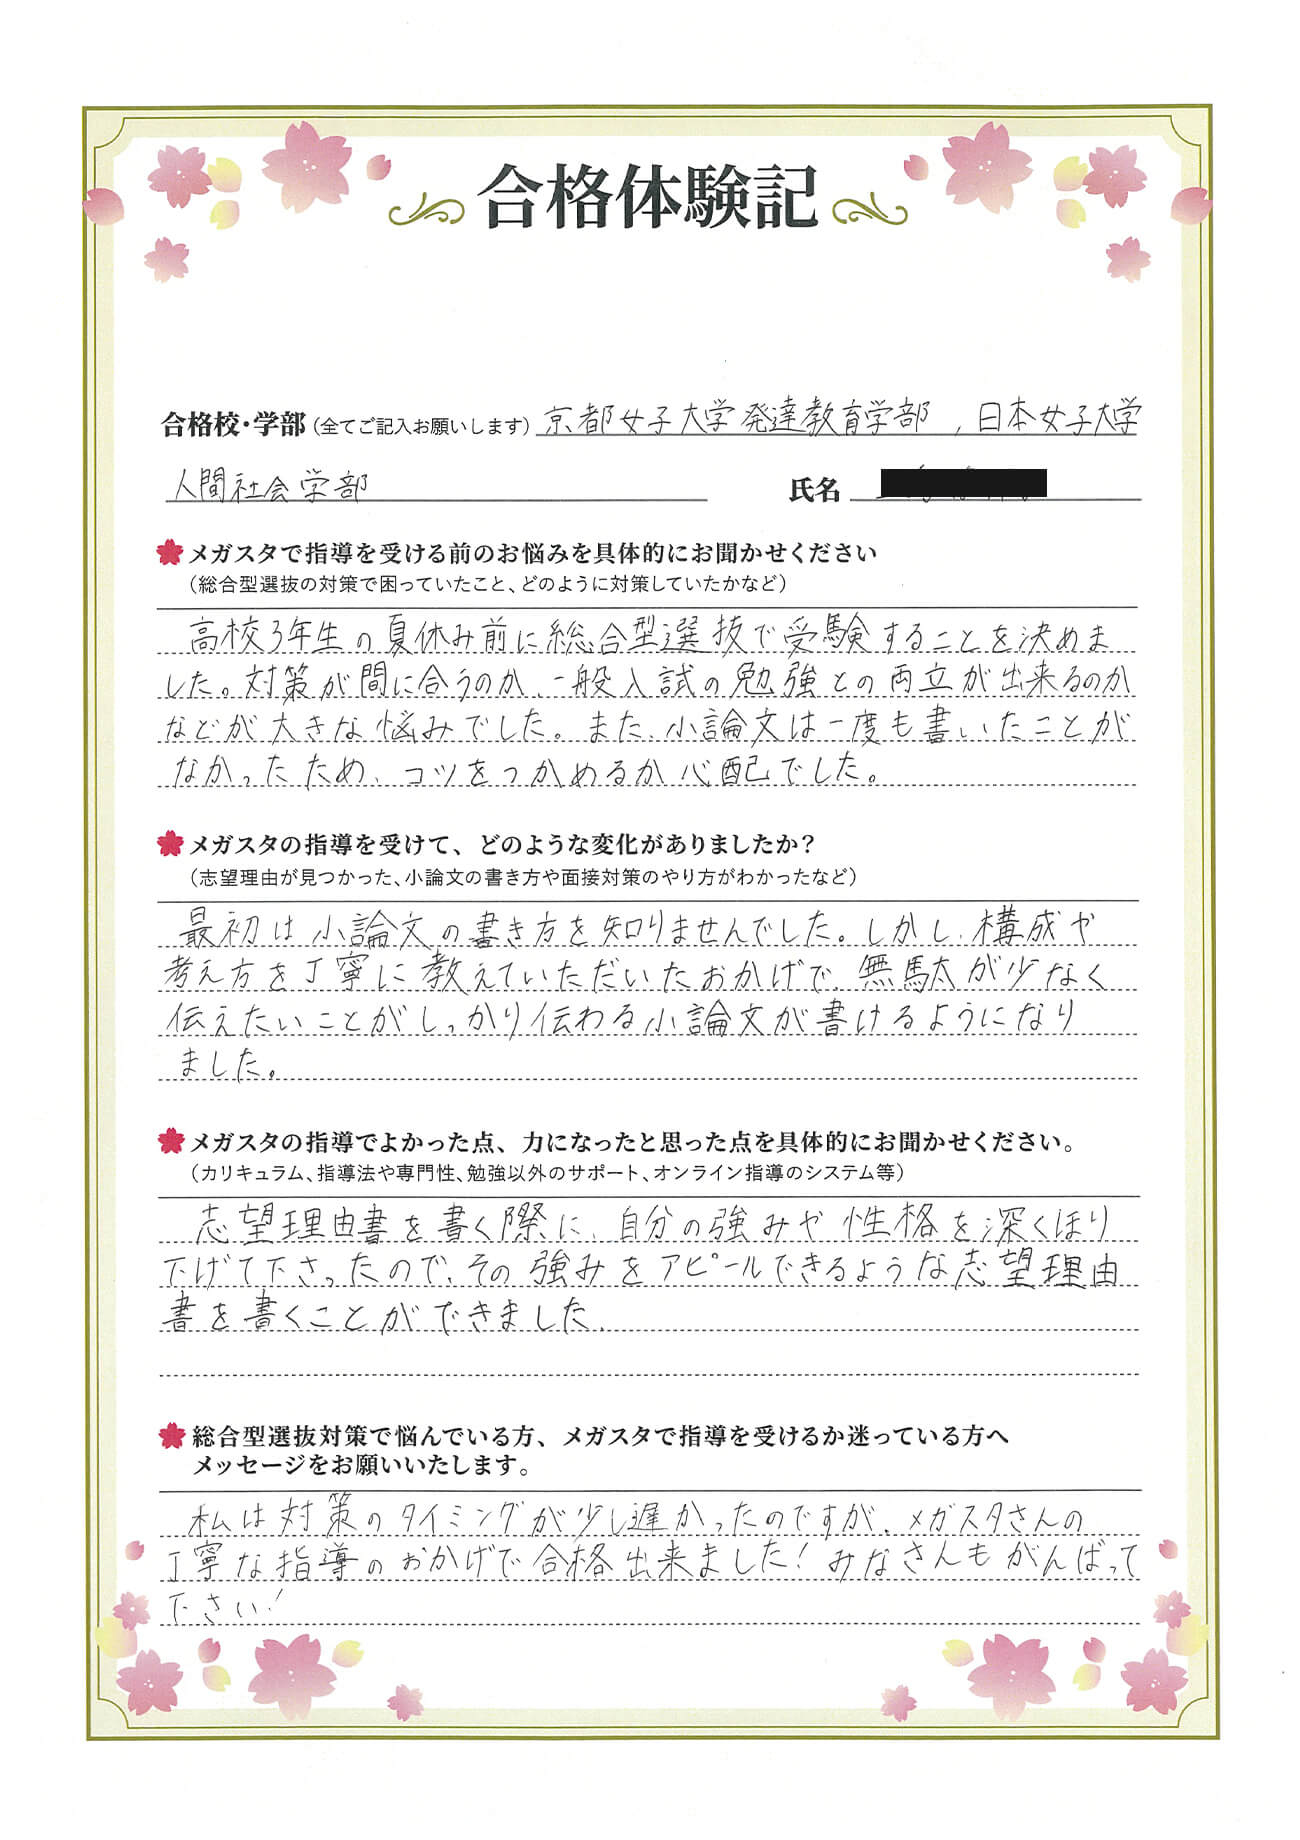 合格体験記
合格校・学部（全てご記入お願いします）京都女子大学発達教育学部，日本女子大学
人間社会学部 氏名
メガスタで指導を受ける前のお悩みを具体的にお聞かせください
（総合型選抜の対策で困っていたこと、どのように対策していたかなど）
高校3年生の夏休み前に総合型選抜で受験することを決めま
した。対策が間に合うのか、一般入試の勉強との両立が出来るのか
などが大きな悩みでした。また、小論文は一度も書いたことが
なかったため、コツをつかめるか心配でした。
メガスタの指導を受けて、どのような変化がありましたか？
（志望理由が見つかった、小論文の書き方や面接対策のやり方がわかったなど）
最初は小論文の書き方を知りませんでした。しかし、構成や
考え方を丁寧に教えていただいたおかげで、無駄が少なく
伝えたいことがしっかり伝わる小論文が書けるようになり
ました。
メガスタの指導でよかった点、力になったと思った点を具体的にお聞かせください。
（カリキュラム、指導法や専門性、勉強以外のサポート、オンライン指導のシステム等）
志望理由書を書く際に、自分の強みや性格を深くほり
下げて下さったので、その強みをアピールできるような志望理由
書を書くことができました。
総合型選抜対策で悩んでいる方、メガスタで指導を受けるか迷っている方へ
メッセージをお願いいたします。
私は対策のタイミングが少し遅かったのですが、メガスタさんの
丁寧な指導のおかげで合格出来ました！みなさんもがんばって
下さい！